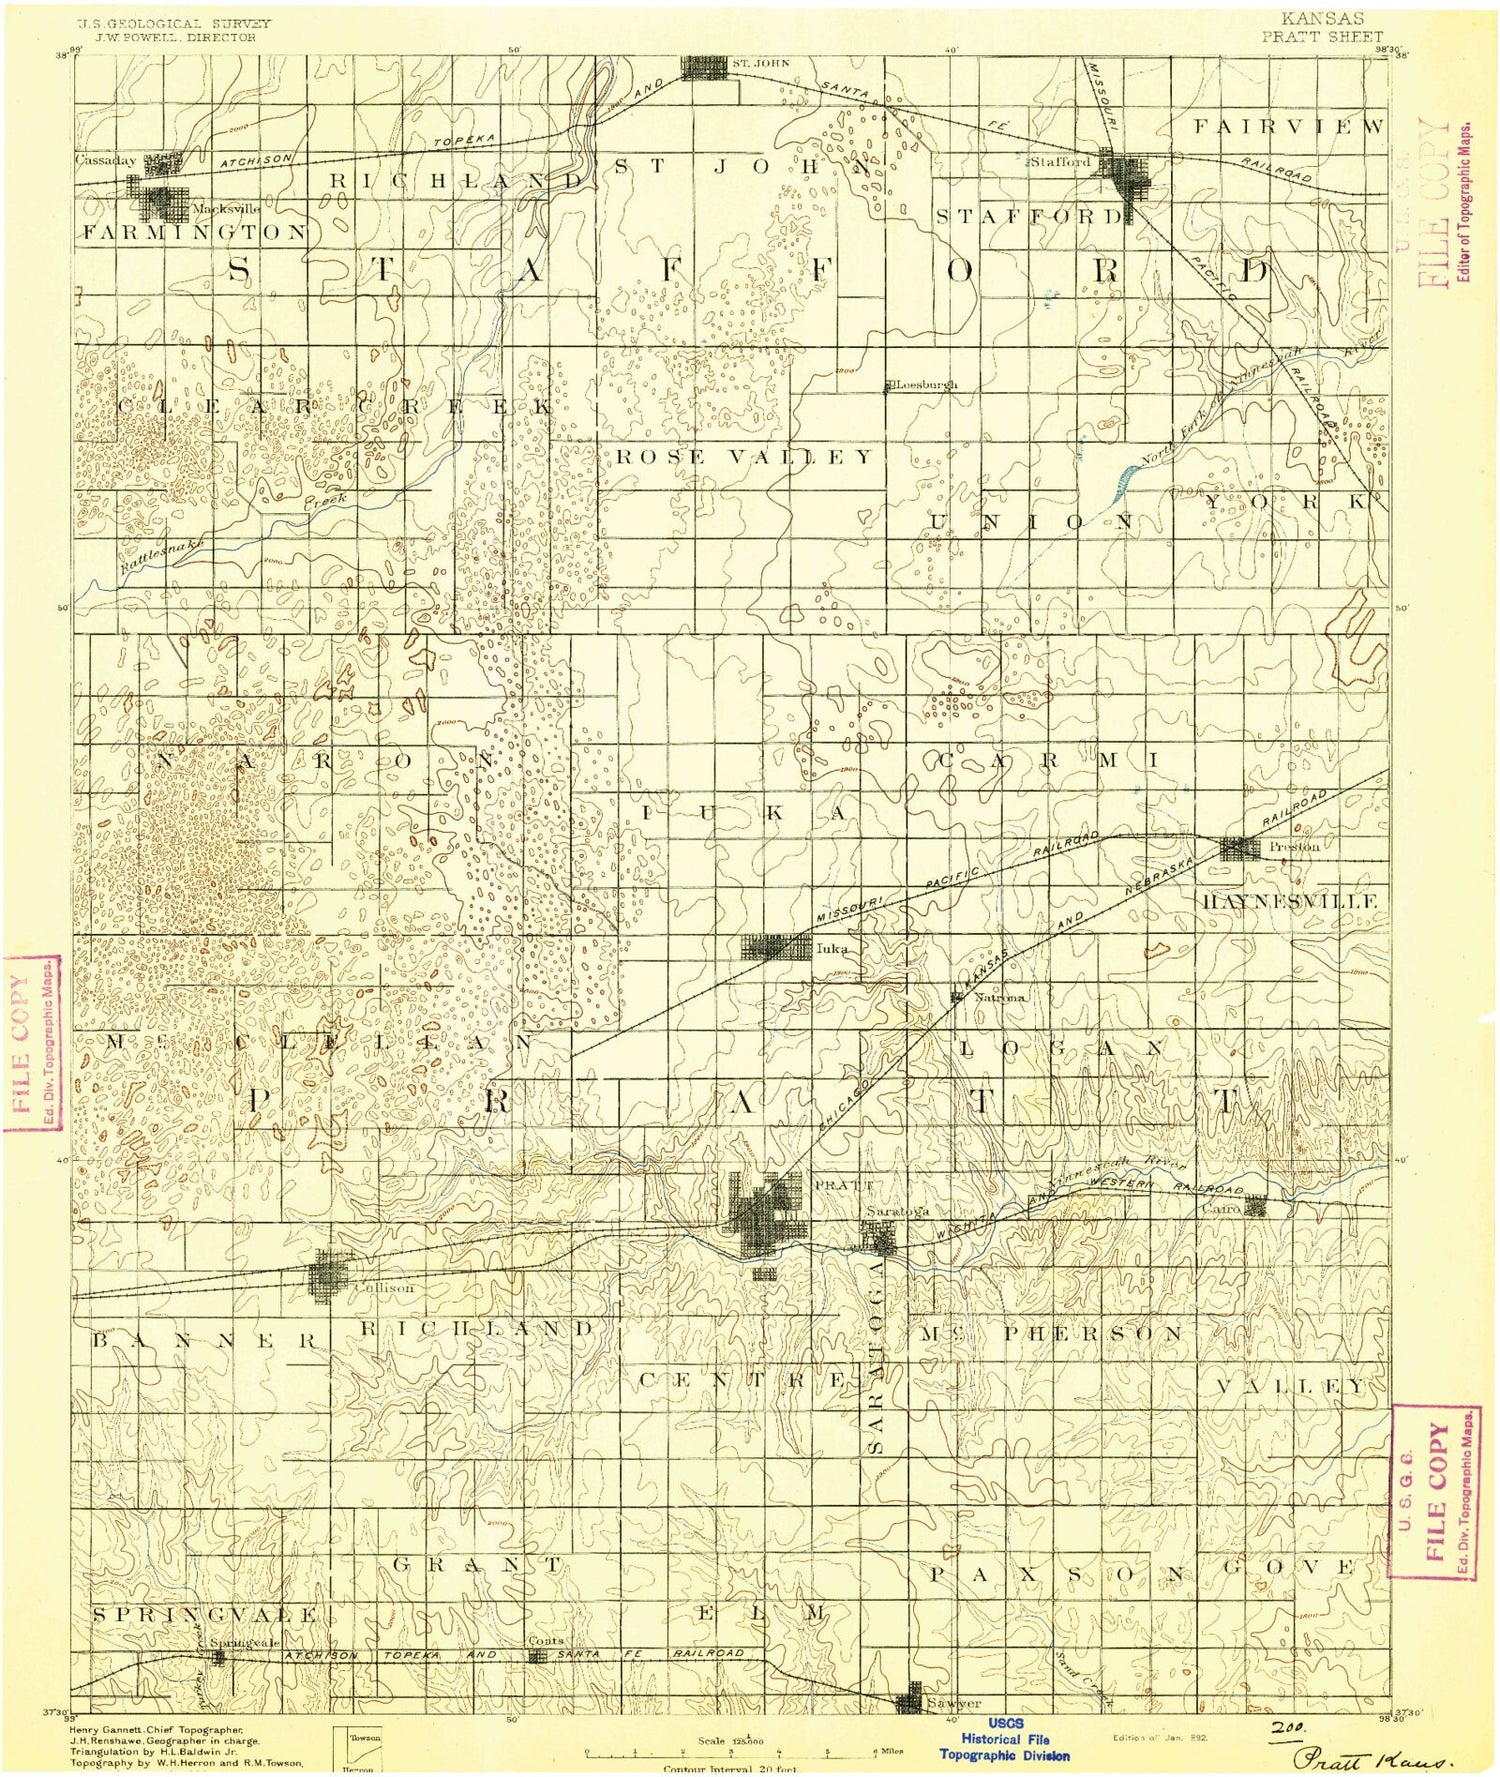 U.S. GEOLOGICAL SURVEY
J.W. POWELL, DIRECTOR
KANSAS
PRATT SHEET
38°
99°
50'
40'
98°30'
38°
ST. JOHN
ATCHISON TOPEKA AND SANTA FE RAILROAD
MISSOURI PACIFIC RAILROAD
FAIRVIEW
Cassaday
Stafford
RICHLAND
ST JOHN
Macksville
STAFFORD
FARMINGTON
STAFFORD
U.S.G.S.
FILE COPY
Editor of Topographic Maps.
North Fork of Ninnescah River
Loesburgh
CLEAR CREEK
ROSE VALLEY
YORK
UNION
Rattlesnake Creek
2000
1900
1800
50'
50'
NARON
CARMI
IUKA
MISSOURI PACIFIC RAILROAD
Preston
CHICAGO KANSAS AND NEBRASKA RAILROAD
HAYNESVILLE
Iuka
Natrona
FILE COPY
Ed. Div. Topographic Maps.
Mc CLELLAN
LOGAN
PRATT
40'
40'
Ninnescah River
PRATT
WICHITA AND WESTERN RAILROAD
Saratoga
Cairo
Cullison
BANNER
RICHLAND
SARATOGA
Mc PHERSON
CENTRE
VALLEY
U.S.G.S.
FILE COPY
Ed. Div. Topographic Maps.
GRANT
PAXSON
GOVE
SPRINGVALE
ELM
Springvale
Coats
ATCHISON TOPEKA AND SANTA FE RAILROAD
Turkey Creek
Sand Creek
Sawyer
37°30'
99°
50'
40'
98°30'
37°30'
Henry Gannett, Chief Topographer.
J.H. Renshawe, Geographer in charge.
Triangulation by H.L. Baldwin Jr.
Topography by W.H. Herron and R.M. Towson.
Towson
Herron
Scale 1/125000
0 1 2 3 4 5 6 Miles
Contour Interval 20 feet
USGS
Historical File
Topographic Division
Edition of Jan. 892.
200.
Pratt Kans.